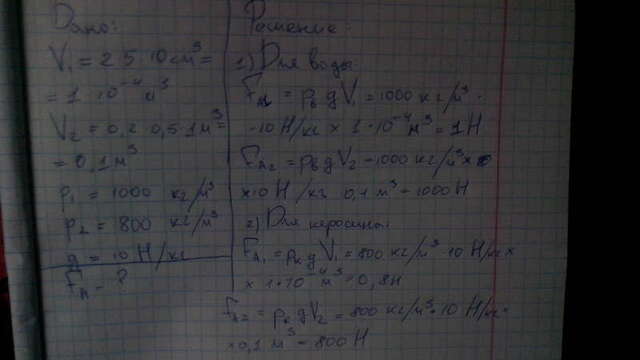 Дано:
V₁ = 2·5·10 см³ =
= 1·10⁻⁴ м³
V₂ = 0,2·0,5·1 м³ =
= 0,1 м³
ρ₁ = 1000 кг/м³
ρ₂ = 800 кг/м³
g = 10 Н/кг
F_A - ?
Решение:
1) Для воды:
F_A₁ = ρ_в g V₁ = 1000 кг/м³ ·
· 10 Н/кг × 1·10⁻⁴ м³ = 1 Н
F_A₂ = ρ_в g V₂ = 1000 кг/м³ ×
× 10 Н/кг · 0,1 м³ = 1000 Н
2) Для керосина:
F_A₁ = ρ_к g V₁ = 800 кг/м³ · 10 Н/кг ×
× 1·10⁻⁴ м³ = 0,8 Н
F_A₂ = ρ_к g V₂ = 800 кг/м³ · 10 Н/кг ·
· 0,1 м³ = 800 Н